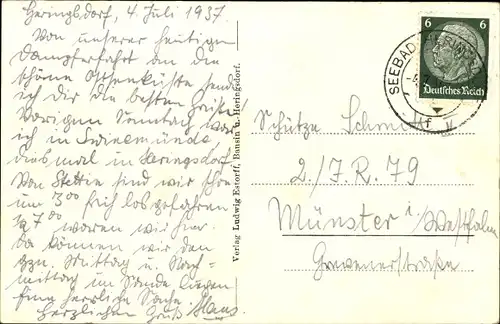 Heringsdorf, 4. Juli 1937.
Von unserer heutigen
Dampferfahrt an die
schöne Ostseeküste sende
ich Dir die besten Grüße!
Vorigen Sonntag war
ich in Swinemünde,
diesmal in Heringsdorf.
Von Stettin sind wir schon
um 3 00 früh losgefahren
1/2 7 00 waren wir hier.
da können wir den
gzn. Mittag u. Nach-
mittag im Sande liegen
Eine herrliche Sache.
Herzlichen Gruß Hans
Verlag Ludwig Estorff, Bansin u. Heringsdorf.
6 6
Deutsches Reich
SEEBAD
Schütze Schmitt
2./J.R. 79
Münster i/Westfalen
Grevenerstraße